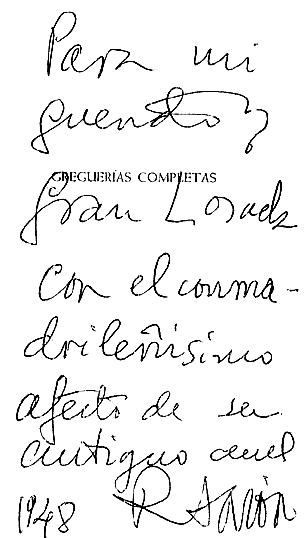 Para mi
querido y
GREGUERÍAS COMPLETAS
Gran Losada
con el conma-
drileñísimo
afecto de su
antiguo
1948 RAMÓN